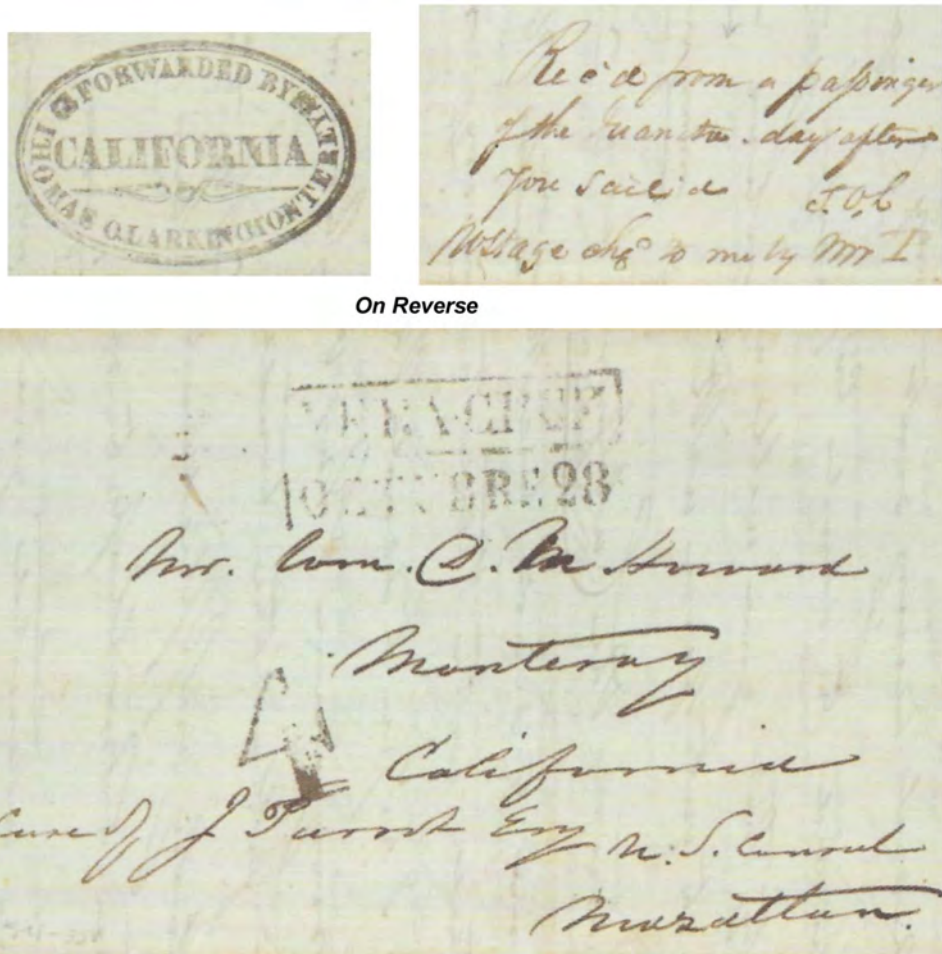 FORWARDED BY
CALIFORNIA
THOMAS O. LARKIN MONTEREY
Rec'd from a passenger
of the Juanita day after
you sail'd
T.O.L
Postage chg to me by Mr I
On Reverse
VERA CRUZ
OCTUBRE 28
Mr. Wm. D. M Howard
Monteray
4
California
Care of J Parrott Esq U. S. Consul
Mazatlan.